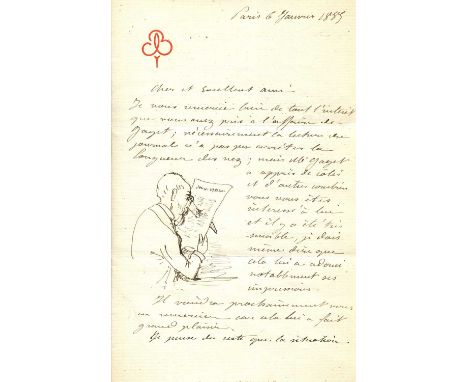 Paris 6 Janvier 1885
Cher et Excellent ami
Je vous remercie bien de tout l'intérêt
que vous avez pris à l'affaire de
Gaget; nécessairement la lecture du
journal n'a pas pu arrêter la
longueur des nez; mais Mr Gaget
a appris de coté
et d'autre combien
vous vous êtes
intéressé à lui
et il y a été très
sensible, je dois
même dire que
cela lui a adouci
notablement ses
Il viendra prochainement vous
en remercier car cela lui a fait
grand plaisir.
Je pense du reste que la situation